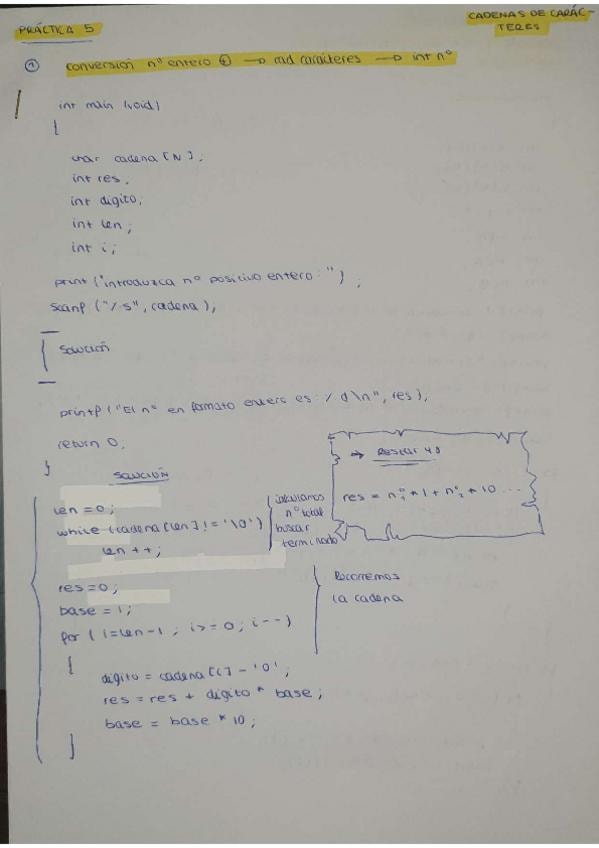 CADENAS DE CARÁC-
TERES
PRÁCTICA 5
① conversión nº entero ⊕ → cad carácteres → int nº
int main (void)
{
char cadena [N];
int res,
int digito;
int len;
int i;
print ("introduzca nº positivo entero: ");
scanf ("%s", cadena);
[ solución
printf ("El nº en formato entero es: %d\n", res);
return 0;
}
→ Restar 48
res = n₁º * 1 + n₂º * 10 ...
solución
len = 0;
while (cadena [len] != '\0')
len ++;
calculamos
nº total
buscar
terminado
res = 0;
base = 1;
for ( i = len - 1 ; i >= 0 ; i -- )
Recorremos
la cadena
{
digito = cadena [i] - '0';
res = res + digito * base;
base = base * 10;
}